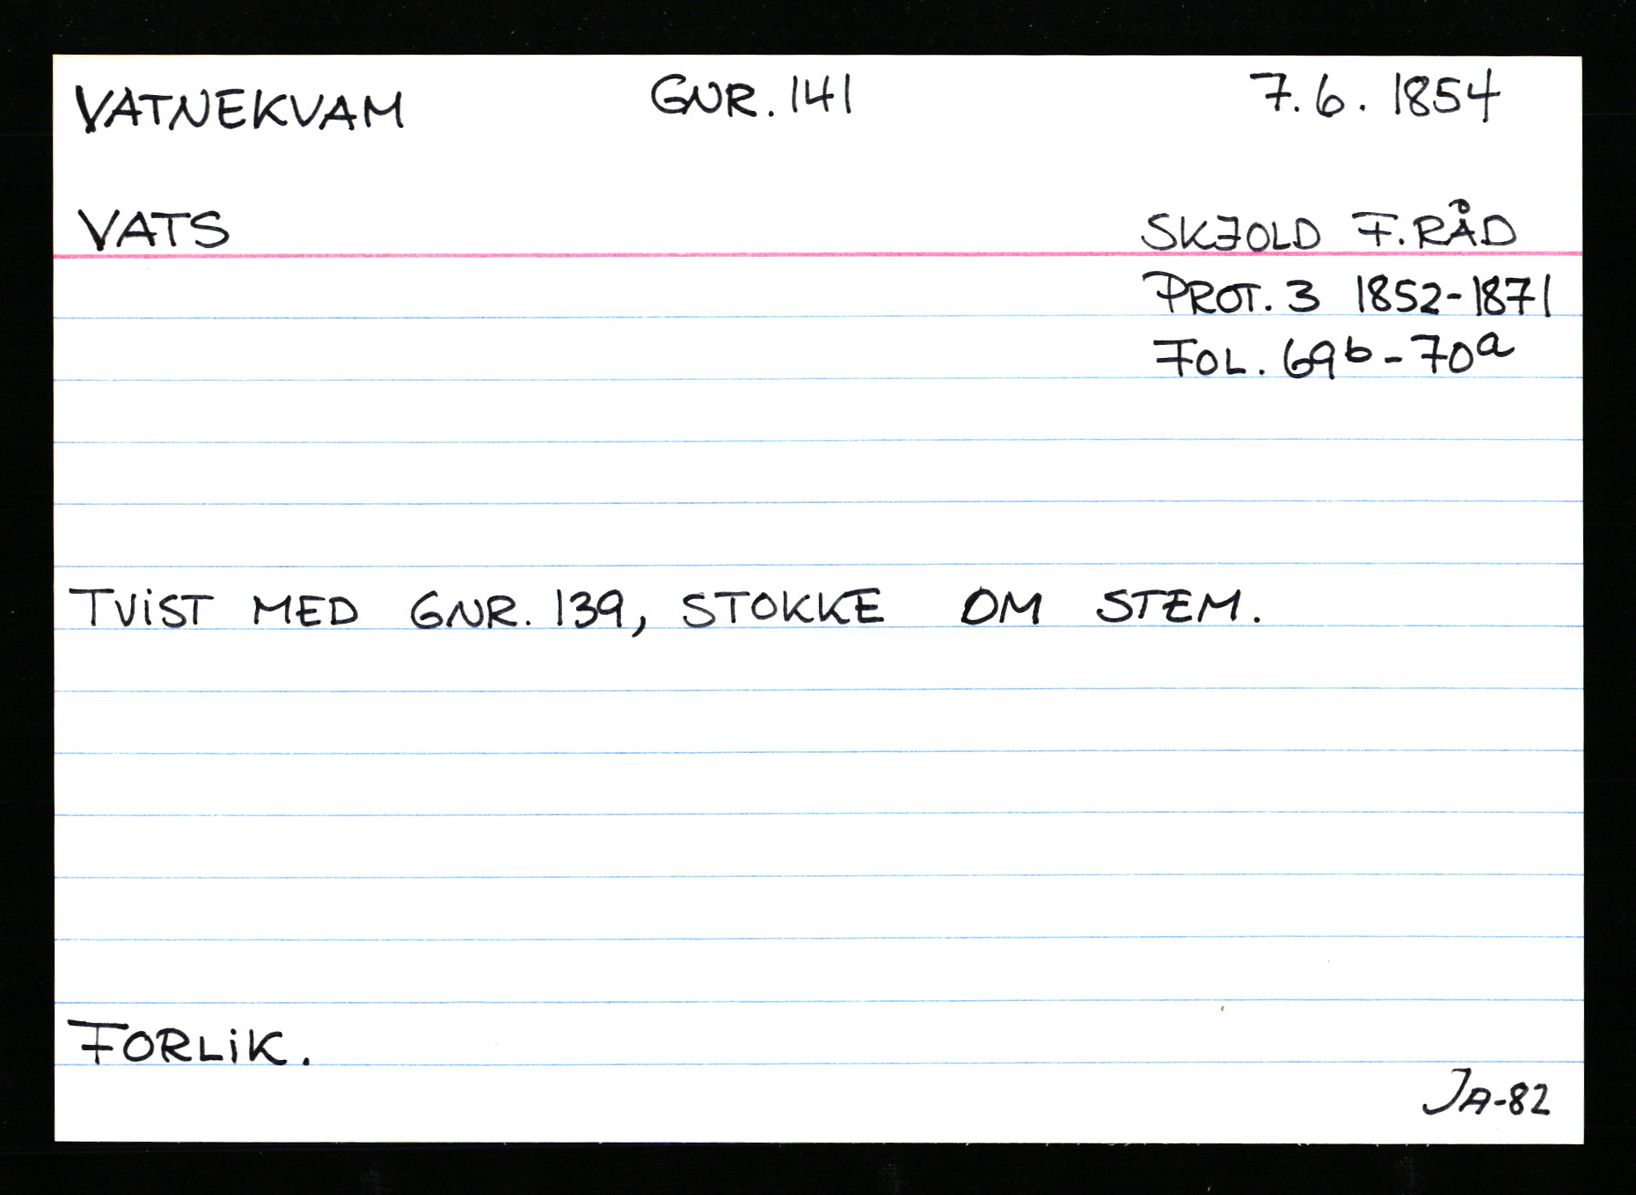 VATNEKVAM GNR. 141 7.6. 1854
VATS SKJOLD F.RÅD
PROT. 3 1852-1871
FOL. 69b-70a
TViST MED GNR. 139, STOKKE OM STEM.
FORLiK.
JA-82